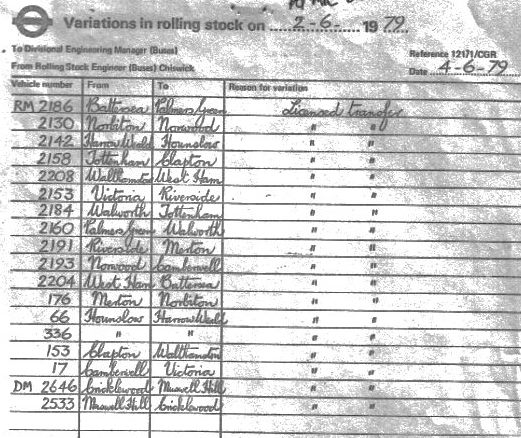 Variations in rolling stock on 2-6- 1979
To Divisional Engineering Manager (Buses)
Reference 12171/CGR
From Rolling Stock Engineer (Buses) Chiswick
Date 4-6-79
Vehicle number From To Reason for variation
RM 2186 Battersea Palmers Green Licensed transfer
2130 Norbiton Norwood " "
2142 Harrow Weald Hounslow " "
2158 Tottenham Clapton " "
2208 Walthamstow West Ham " "
2153 Victoria Riverside " "
2184 Walworth Tottenham " "
2160 Palmers Green Walworth " "
2191 Riverside Merton " "
2193 Norwood Camberwell " "
2204 West Ham Battersea " "
176 Merton Norbiton " "
66 Hounslow Harrow Weald " "
336 " " " "
153 Clapton Walthamstow " "
17 Camberwell Victoria " "
DM 2646 Cricklewood Muswell Hill " "
2533 Muswell Hill Cricklewood " "